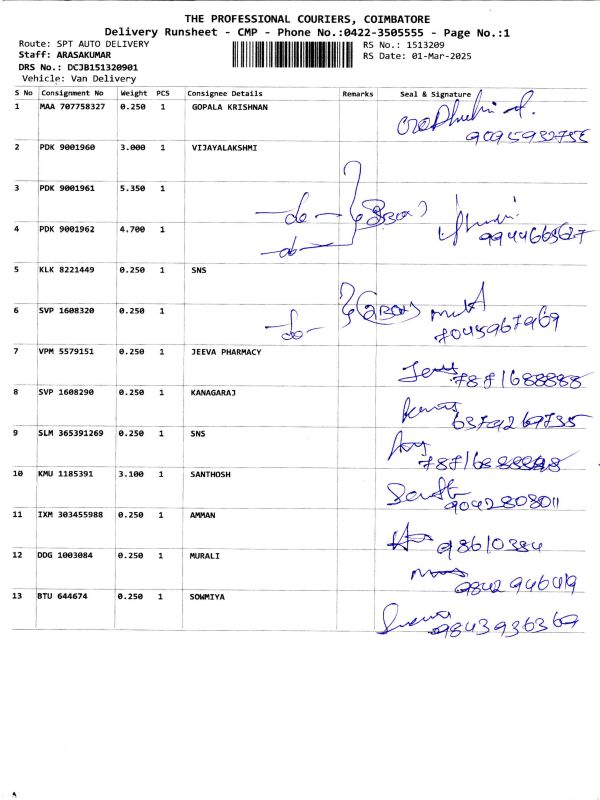 THE PROFESSIONAL COURIERS, COIMBATORE
Delivery Runsheet - CMP - Phone No.:0422-3505555 - Page No.:1
Route: SPT AUTO DELIVERY
RS No.: 1513209
Staff: ARASAKUMAR
RS Date: 01-Mar-2025
DRS No.: DCJB151320901
Vehicle: Van Delivery
S No Consignment No Weight PCS Consignee Details Remarks Seal & Signature
1 MAA 707758327 0.250 1 GOPALA KRISHNAN
9095932755
2 PDK 9001960 3.000 1 VIJAYALAKSHMI
3 PDK 9001961 5.350 1 -do-
4 PDK 9001962 4.700 1 -do-
9944665627
5 KLK 8221449 0.250 1 SNS
6 SVP 1608320 0.250 1 -do-
7045967969
7 VPM 5579151 0.250 1 JEEVA PHARMACY
7871688888
8 SVP 1608290 0.250 1 KANAGARAJ
6379269735
9 SLM 365391269 0.250 1 SNS
10 KMU 1185391 3.100 1 SANTHOSH
9042808011
11 IXM 303455988 0.250 1 AMMAN
98610384
12 DDG 1003084 0.250 1 MURALI
13 BTU 644674 0.250 1 SOWMIYA
9843936369